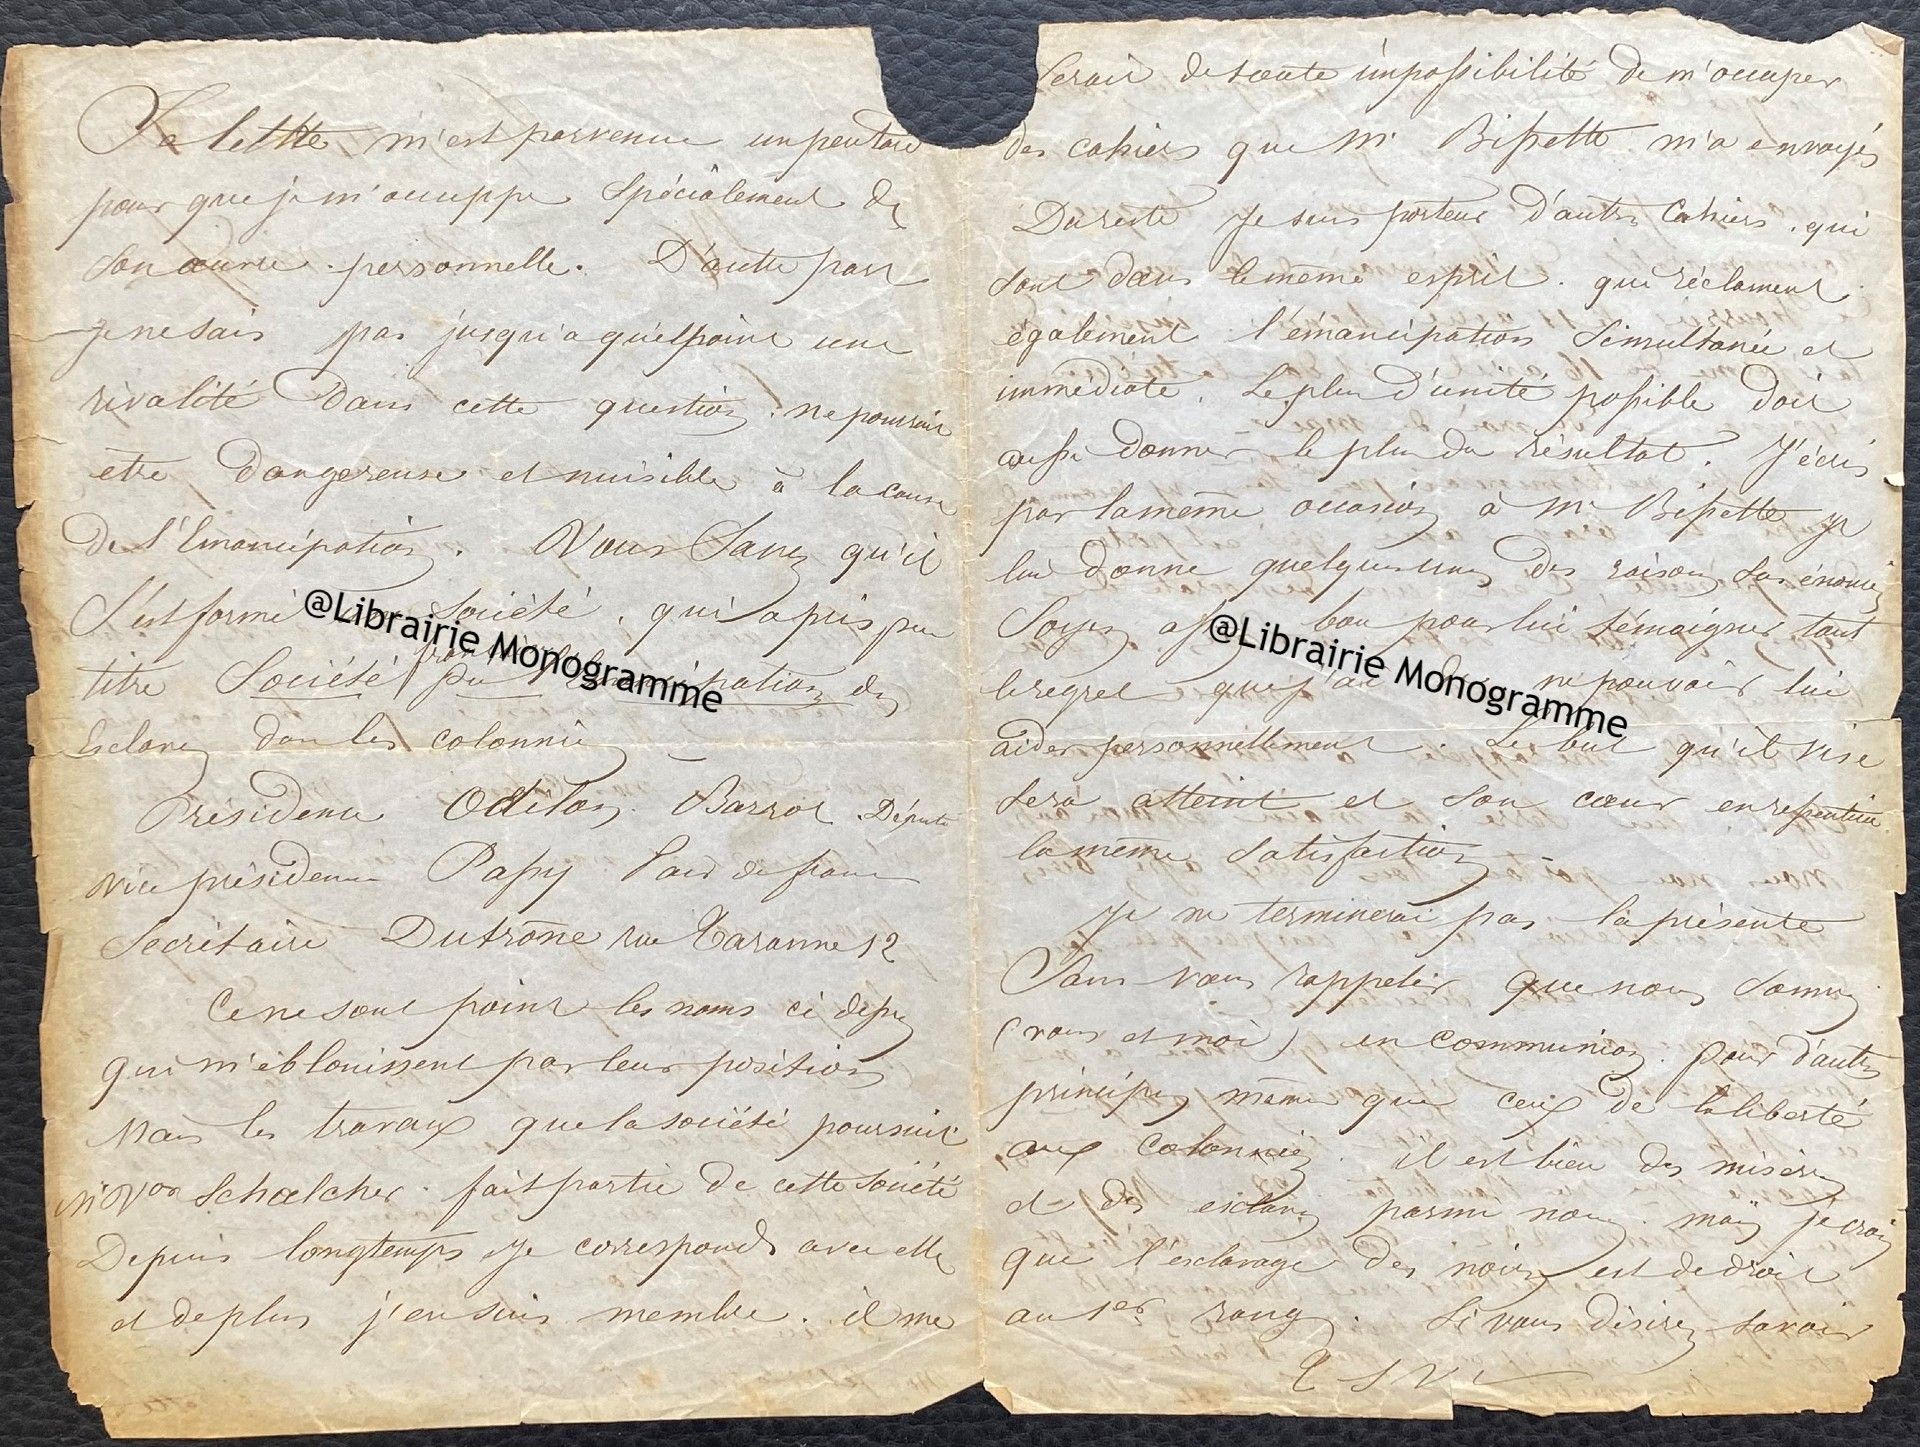 Sa lettre m'est parvenue un peu tard
pour que je m'occuppe spécialement de
son œuvre personnelle. D'autre part
je ne sais pas jusqu'a quel point une
rivalité dans cette question ne pourrait
etre dangereuse et nuisible à la cause
de l'Emancipation. Vous savez qu'il
s'est formé société, qui a pris pour
titre Société pour l'émancipation des
Esclaves dans les colonnies
Présidence Odilon Barrot Député
vice présidence Passy Pair de france
Secrétaire Dutrône rue Taranne 12
Ce ne sont point les noms ci dessus
qui m'éblouissent par leur position
Mais les travaux que la société poursuit
Mr Vor Schœlcher fait partie de cette société
Depuis longtemps je corresponds avec elle
et de plus j'en suis membre. il me
serait de toute impossibilité de m'occuper
des cahiers que Mr Bissette m'a envoyés
Du reste je suis porteur d'autres cahiers qui
sont dans le même esprit. qui réclament
également l'émancipation simultanée et
immédiate. Le plus d'unité possible doit
aussi donner le plus de résultat. J'écris
par la même occasion à Mr Bissette je
lui donne quelques unes des raisons sus énoncées
Soyez assez bon pour lui témoigner tout
le regret que j'ai de ne pouvoir lui
aider personnellement. Le but qu'il vise
sera atteint et son cœur en ressentira
la même satisfaction
Je ne terminerai pas la présente
Sans vous rappeler que nous sommes
(vous et moi) en communion pour d'autres
principes même que ceux de la liberté
aux colonnies. il est bien des misères
et des esclaves parmi nous. mais je crois
que l'esclavage des noirs est de droit
au 1er rang. Si vous désirez savoir
T S V P
@Librairie Monogramme
@Librairie Monogramme